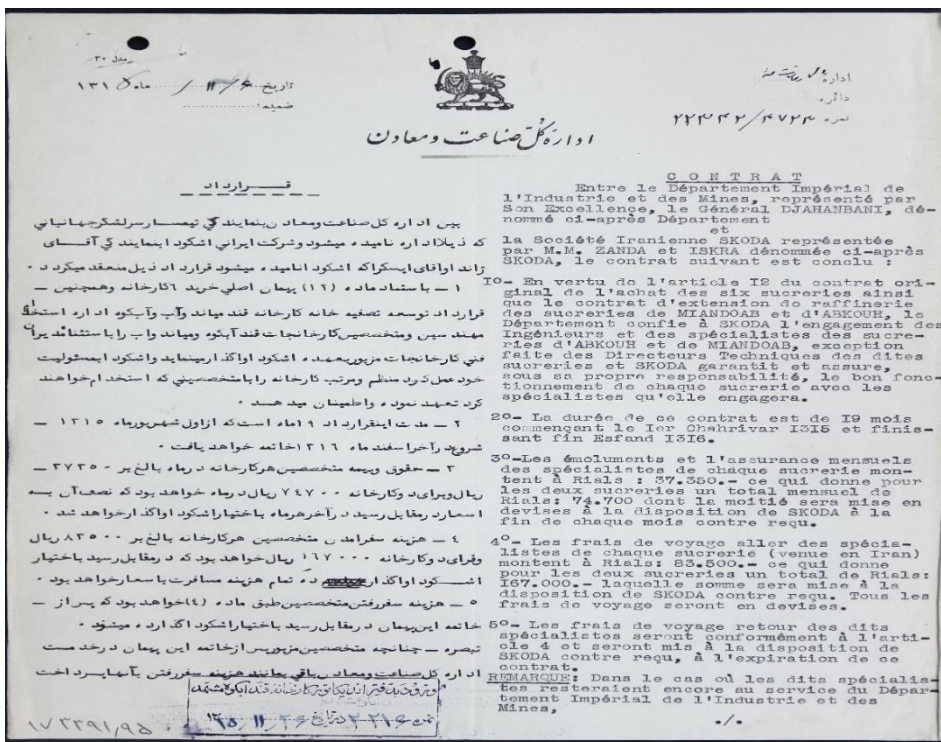 مدل ۳۰
تاریخ ۶ / ۱۱ / ماه ۱۳۱۵
ضمیمه:
اداره
دائره
نمره ۲۲۳۴۲/۴۷۲۴
ادارهٔ کلّ صناعت و معادن
قرارداد
بین اداره کل صناعت ومعادن بنمایندگی تیمسار سرلشگر جهانبانی
که ذیلا اداره نامیده میشود وشرکت ایرانی اشکودا بنمایندگی آقای
زاند اواقای ایسکرا که اشکودا نامیده میشود قرارداد ذیل منعقد میگردد .
۱ – باستناد ماده (۱۲) پیمان اصلی خرید ۶ کارخانه وهمچنین –
قرارداد توسعه تصفیه خانه کارخانه قند میاندوآب وآبکوه اداره استخدام
مهندسین ومتخصصین کارخانجات قند آبکوه ومیاندواب را باستثنای مدیران
فنی کارخانجات مزبور بعهده اشکودا واگذار مینماید واشکودا بمسئولیت
خود عمل کرد منظم ومرتب کارخانه را با متخصصینی که استخدام خواهند
کرد تعهد نموده واطمینان میدهد .
۲ – مدت اینقرارداد ۱۹ ماه است که از اول شهریورماه ۱۳۱۵ –
شروع ودر آخر اسفند ماه ۱۳۱۶ خاتمه خواهد یافت .
۳ – حقوق وبیمه متخصصین هرکارخانه درماه بالغ بر ۳۷۳۵۰ –
ریال وبرای دوکارخانه ۷۴۷۰۰ ریال درماه خواهد بود که نصف آن به
اسعار در مقابل رسید در آخر هرماه باختیار اشکودا واگذار خواهد شد .
۴ – هزینه سفر آمدن متخصصین هرکارخانه بالغ بر ۸۳۵۰۰ ریال
وبرای دوکارخانه ۱۶۷۰۰۰ ریال خواهد بود که در مقابل رسید باختیار
اشکودا واگذار شده تمام هزینه مسافرت باسعار خواهد بود .
۵ – هزینه سفر رفتن متخصصین طبق ماده (۴) خواهد بود که پس از –
خاتمه این پیمان در مقابل رسید باختیار اشکودا گذارده میشود .
تبصره – چنانچه متخصصین مزبور پس از خاتمه این پیمان در خدمت
اداره کل صناعت ومعادن باقی بمانند هزینه سفر رفتن بآنها پرداخت
نمره ۲۲۱۶ در تاریخ ۲۶ / ۱۱ / ۱۳۱۵
۱۷۳۳۹۱/۹۵
CONTRAT
Entre le Département Impérial de
l'Industrie et des Mines, représenté par
Son Excellence, le Général DJAHANBANI, dé-
nommé ci-après Département
et
la Société Iranienne SKODA représentée
par M.M. ZANDA et ISKRA dénommée ci-après
SKODA, le contrat suivant est conclu :
I0- En vertu de l'article I2 du contrat ori-
ginal de l'achat des six sucreries ainsi
que le contrat d'extension de raffinerie
des sucreries de MIANDOAB et d'ABKOUH, le
Département confie à SKODA l'engagement des
Ingénieurs et des spécialistes des sucre-
ries d'ABKOUH et de MIANDOAB, exception
faite des Directeurs Techniques des dites
sucreries et SKODA garantit et assure,
sous sa propre responsabilité, le bon fonc-
tionnement de chaque sucrerie avec les
spécialistes qu'elle engagera.
20- La durée de ce contrat est de I9 mois
commençant le Ier Chahrivar I3I5 et finis-
sant fin Esfand I3I6.
30-Les émoluments et l'assurance mensuels
des spécialistes de chaque sucrerie mon-
tent à Rials : 37.350.- ce qui donne pour
les deux sucreries un total mensuel de
Rials: 74.700 dont la moitié sera mise en
devises à la disposition de SKODA à la
fin de chaque mois contre reçu.
40- Les frais de voyage aller des spécia-
listes de chaque sucrerie (venue en Iran)
montent à Rials: 83.500.- ce qui donne
pour les deux sucreries un total de Rials:
I67.000.- laquelle somme sera mise à la
disposition de SKODA contre reçu. Tous les
frais de voyage seront en devises.
50- Les frais de voyage retour des dits
spécialistes seront conformément à l'arti-
cle 4 et seront mis à la disposition de
SKODA contre reçu, à l'expiration de ce
contrat.
REMARQUE: Dans le cas où les dits spécialis-
tes resteraient encore au service du Dépar-
tement Impérial de l'Industrie et des
Mines,
./.